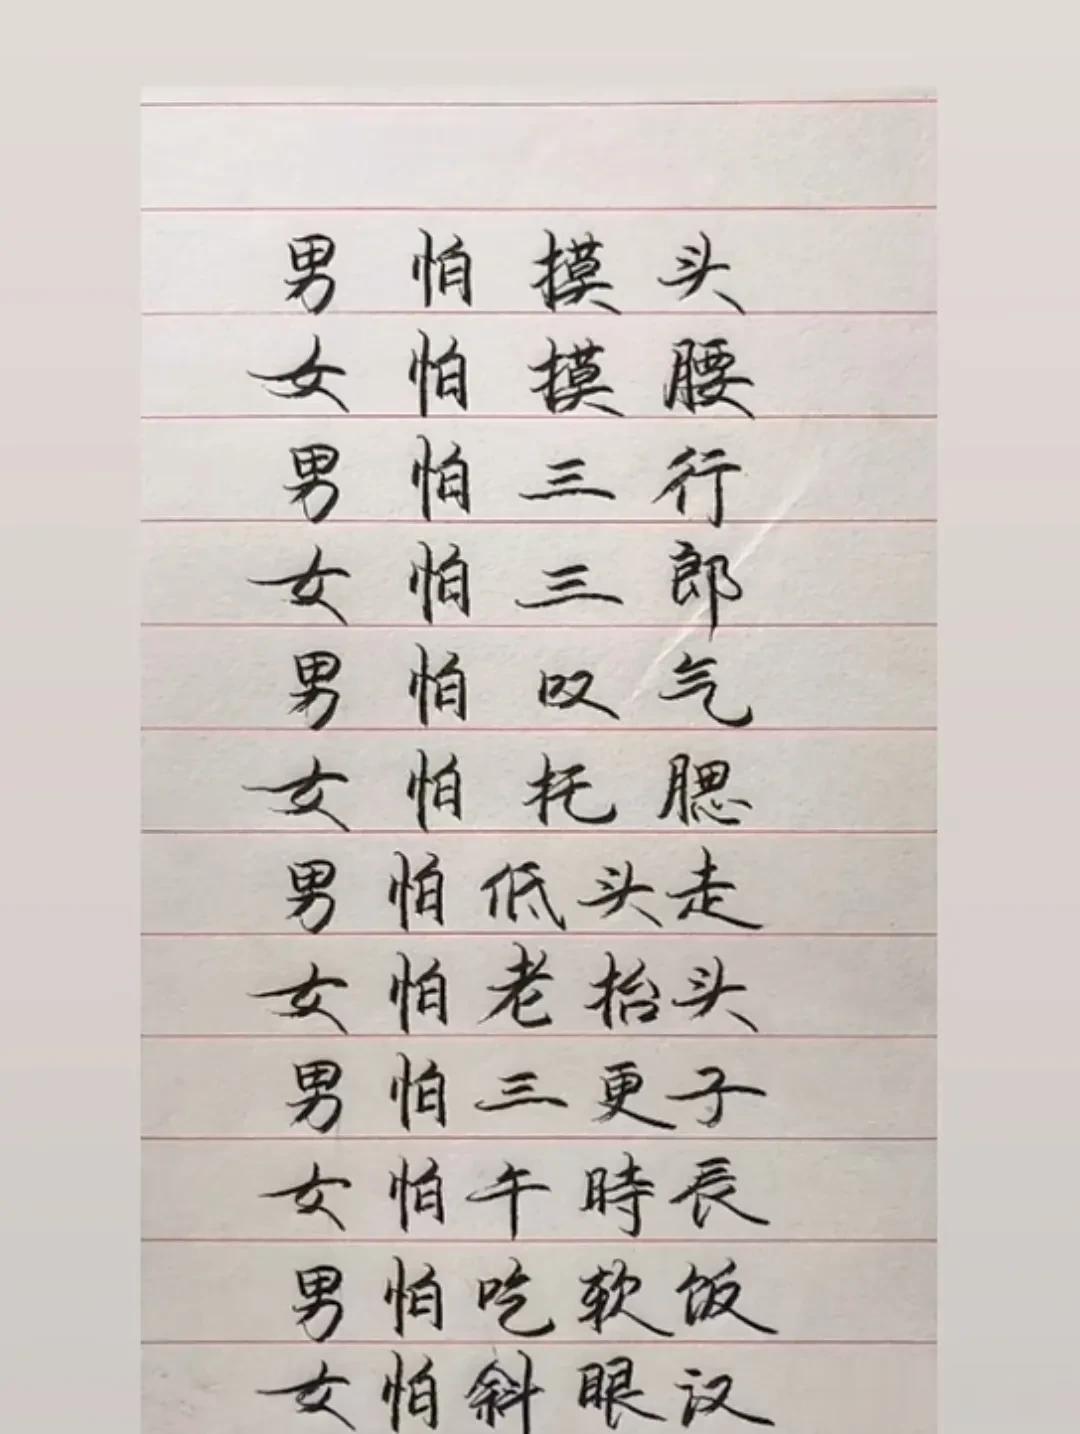 男怕摸头
女怕摸腰
男怕三行
女怕三郎
男怕叹气
女怕托腮
男怕低头走
女怕老抬头
男怕三更子
女怕午時長
男怕吃软饭
女怕斜眼汉